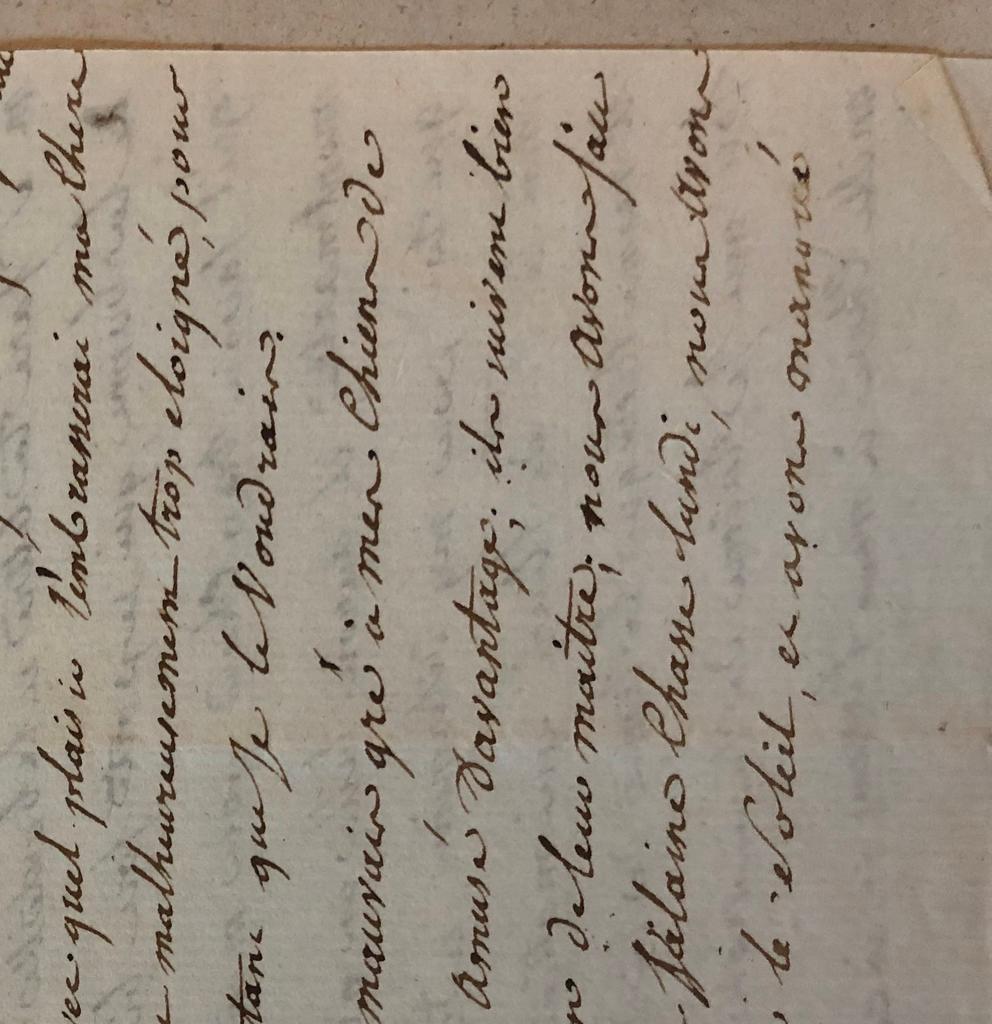 avec quel plaisir l'embrasserai ma Chere
malheureusement trop eloigné, pour
tant que Je le Voudrais.
mauvais gré à mes Chiens de
Amusé Davantage; ils suivent bien
de leur maitre; nous avons fait
Chasse lundi, nous avons
le Soleil, et avons manqué